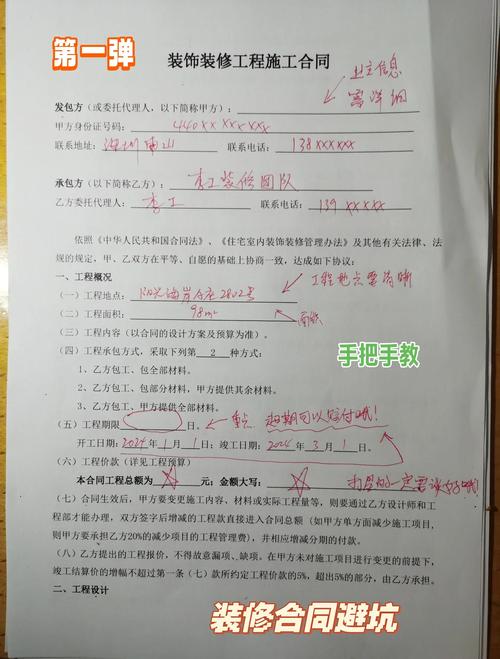 第一弹
装饰装修工程施工合同
业主信息
需详细
发包方(或委托代理人,以下简称甲方):
甲方身份证号码: 440xx xxx xxx
联系地址: 深圳南山 联系电话: 138 xxxxxx
承包方(以下简称乙方): 李工装修团队
乙方委托代理人: 李工 联系电话: 139 xx xxx
依照《中华人民共和国合同法》、《住宅室内装饰装修管理办法》及其他有关法律、法
规的规定,甲、乙双方在平等、自愿的基础上协商一致,达成如下协议:
一、工程概况
(一)工程地点: 阳光海岸 2802号 工程地点要清晰
(二)工程面积: 98m² 面积
(三)工程内容(以合同的设计方案及预算为准)。
(四)工程承包方式,采取下列第 2 种方式:
手把手教
1、乙方包工、包全部材料。
2、乙方包工、包部分材料,甲方提供其余材料。
3、乙方包工、甲方提供全部材料。
(五)工程期限 日。 重点 超期可以赔付哦!
开工日期:2024年 1 月 1 日;竣工日期:2024 年 3 月 1 日。
(六)工程价款(详见工程预算)
本合同工程总额为 元;金额大写: 一定要谈好哦!
(七)合同生效后,甲方要变更施工内容、材料或实际工程量等,则要通过乙方设计师和工
程部才能办理,双方签字后增减的工程款直接进入合同总额(如甲方单方面减少施工项目,
则甲方要承担乙方20%的减少项目的工程管理费),并相应增减分期的付款。
(八)乙方提出的工程报价,不得故意漏项、缺项。在甲方未对施工项目进行变更的前提下,
竣工结算价的增幅不超过第一条(七)款所约定工程价款的5%,超出5%的部分,由乙方承担。
二、工程设计
装修合同避坑